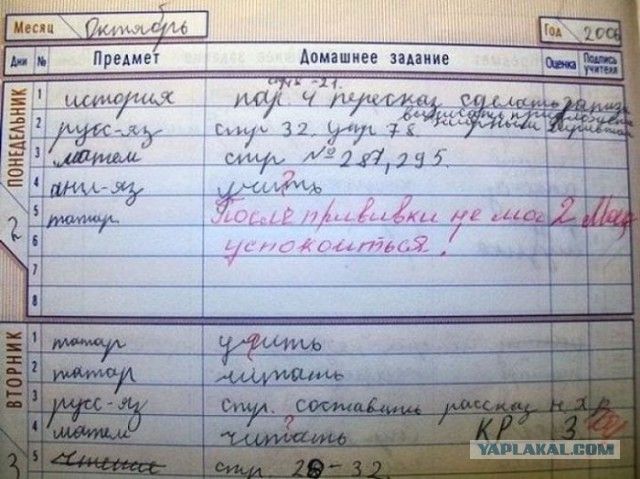 Месяц Октябрь Год 2006
Дни № Предмет Домашнее задание Оценка Подпись учителя
ПОНЕДЕЛЬНИК
2
стр -21.
1 история пар. 4 пересказ сделать
2 русс-яз стр 32. упр 78
3 матем стр № 287, 295.
4 анг-яз учить
?
5 татар. После прививки не мог 2
6 успокоиться!
7
8
ВТОРНИК
3
1 татар учить
2 татар читать
3 русс-яз стр. составить рассказ
?
4 матем читать КР 3
5 чтение стр. 28-32
YAPLAKAL.COM